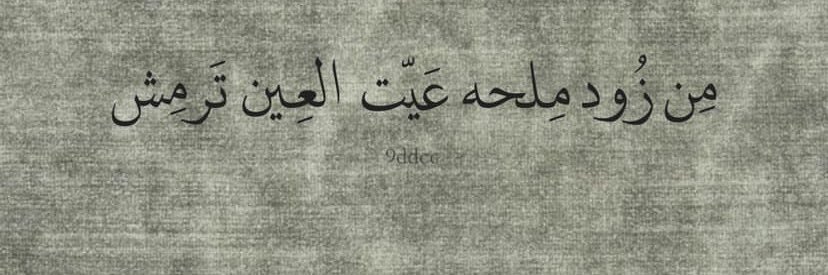 مِن زُود مِلحه عَيّت العِين تَرمِش
9ddcc